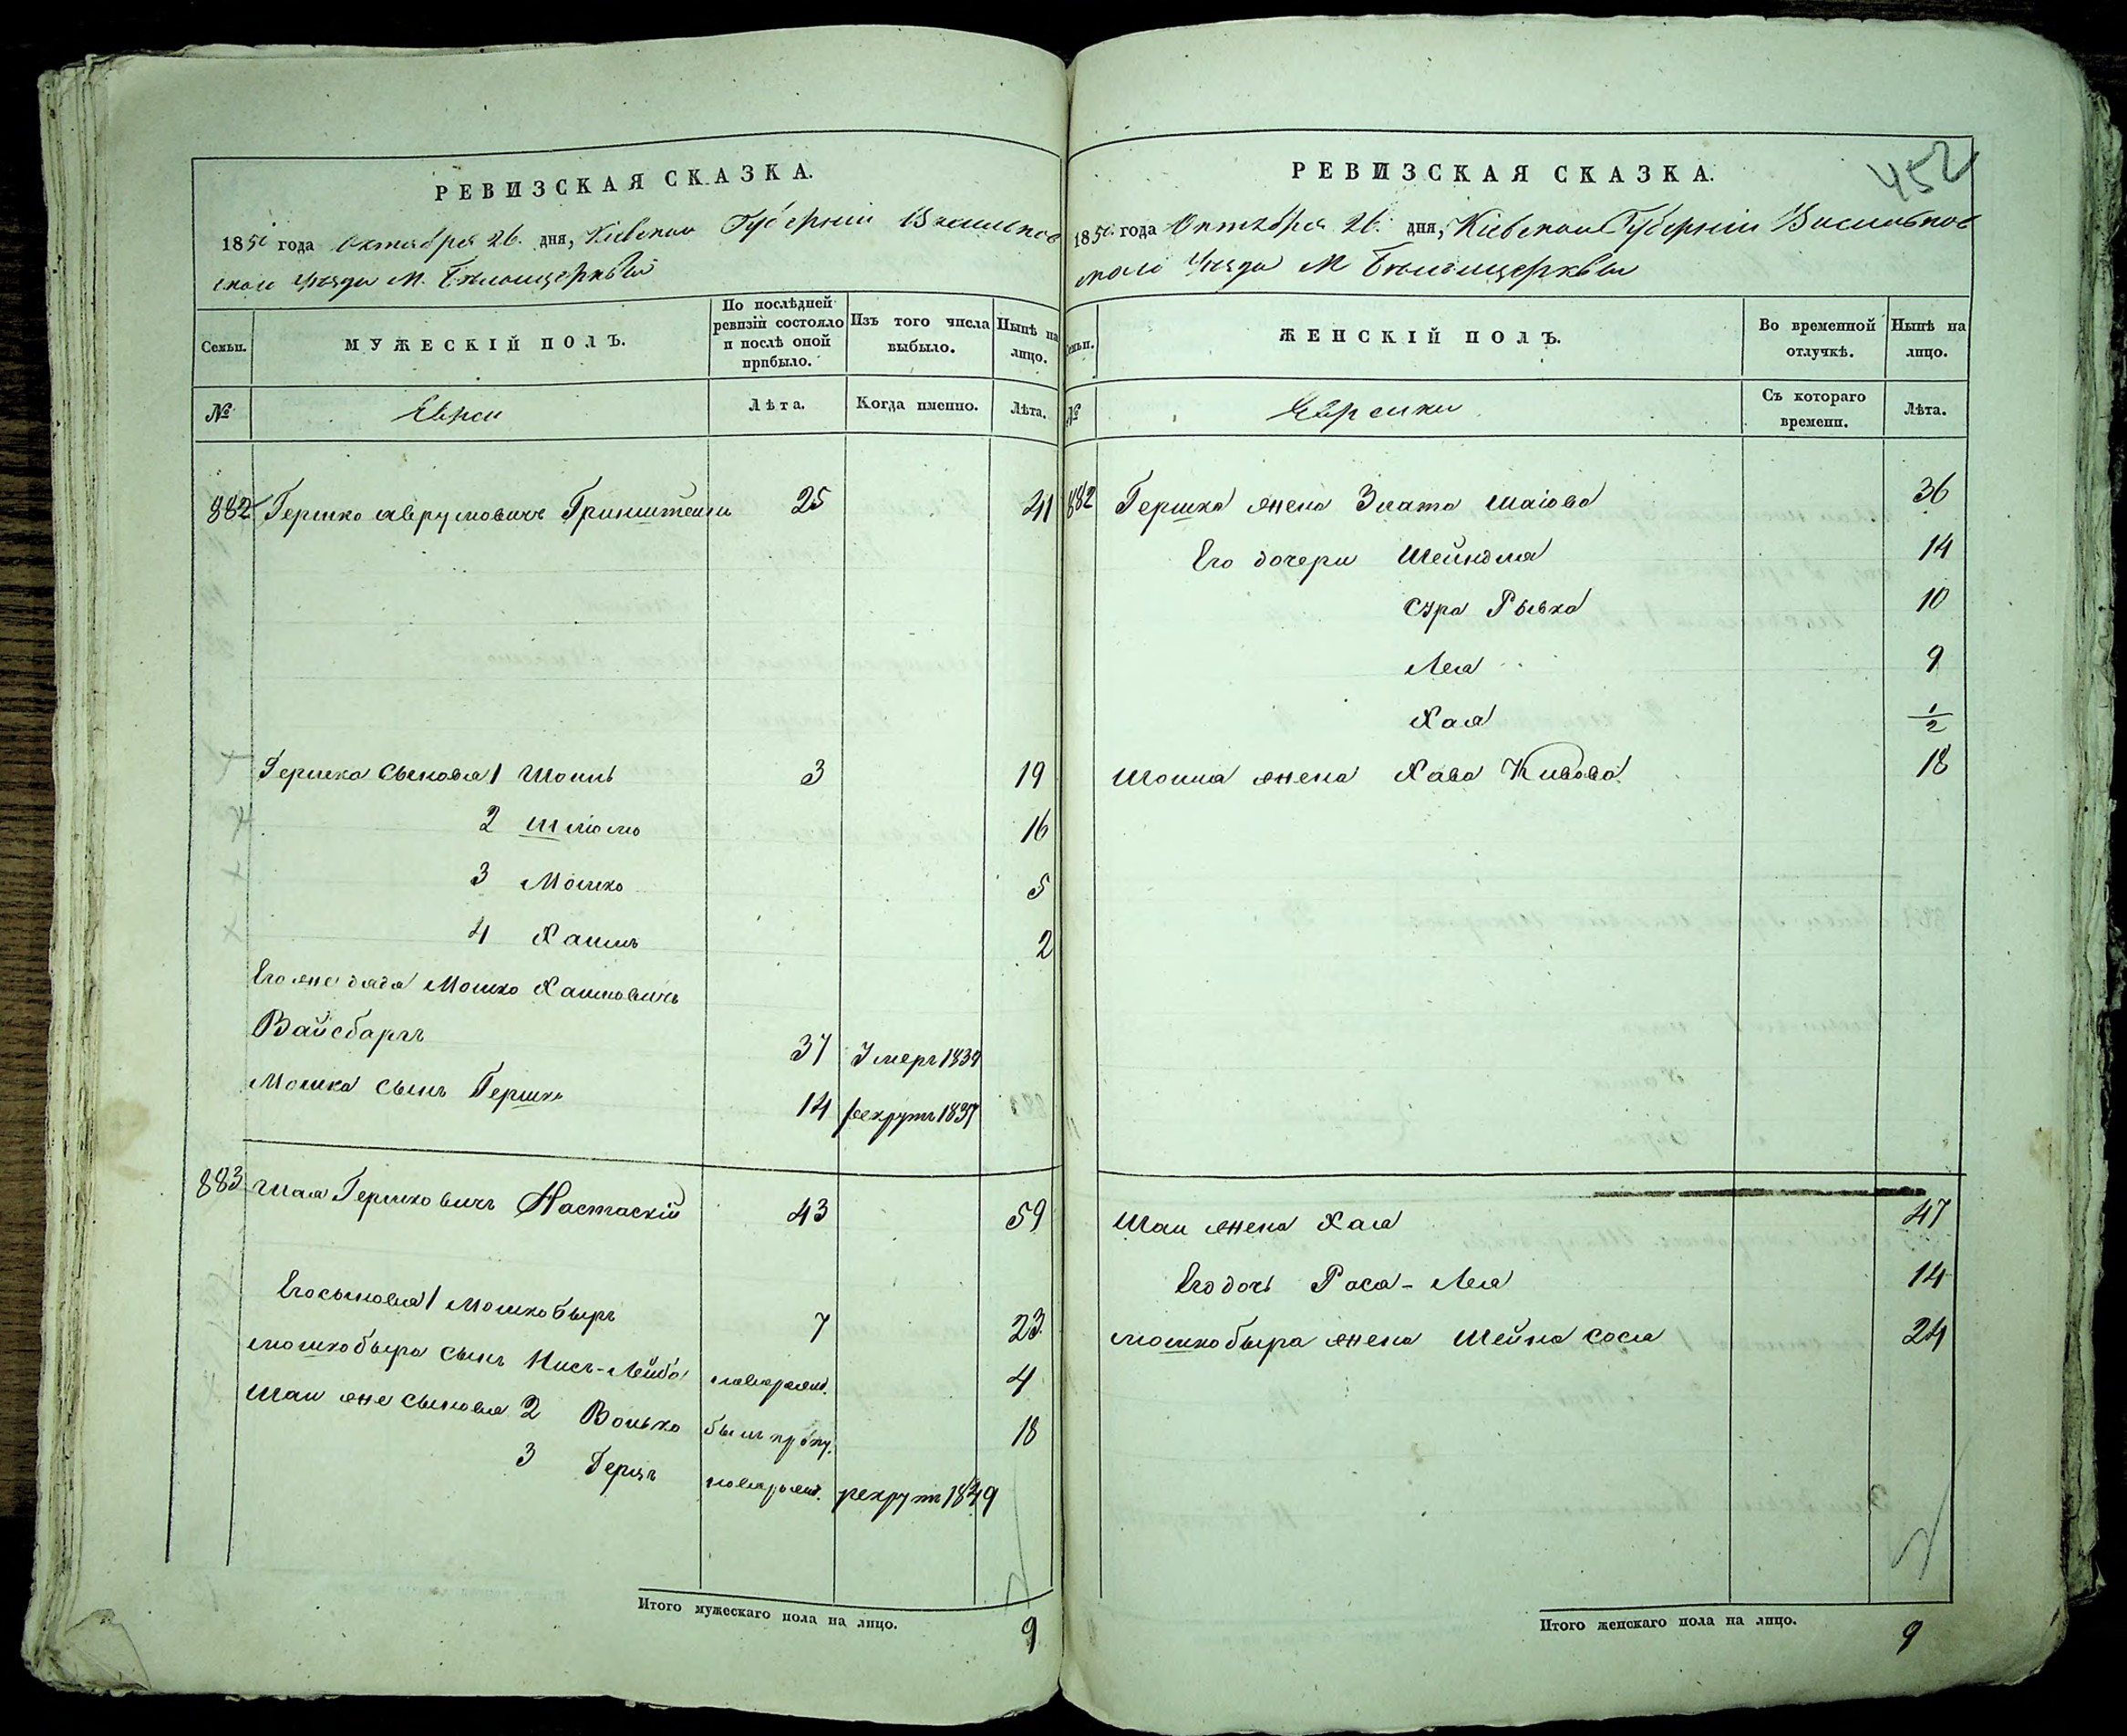 РЕВИЗСКАЯ СКАЗКА.
1850 года Октября 26. дня, Кіевской Губерніи Васильков
скаго уѣзда М. Бѣлоцерквы
Семьи. МУЖЕСКІЙ ПОЛЪ. По послѣдней ревизіи состояло и послѣ оной прибыло. Изъ того числа выбыло. Нынѣ на лицо.
№ Евреи Лѣта. Когда именно. Лѣта.
882 Гершко Аврумовичъ Гринштейнъ 25 41
Гершка сыновья 1 Шоилъ 3 19
2 Шліомо 16
3 Мошко 5
4 Хаимъ 2
Его же дядя Мошко Хаимовичъ
Вайсбаргъ 37 Умеръ 1839
Мошка сынъ Гершко 14 рекрутъ 1837
883 Шая Гершковичъ Настаскій 43 59
Его сыновья 1 Мошко Быръ 7 23
Мошко Быра сынъ Нисъ-Лейба новорожд. 4
Шаи же сыновья 2 Волько былъ пропу. 18
3 Герцъ новорожд. рекрутъ 1849
Итого мужескаго пола на лицо. 9
РЕВИЗСКАЯ СКАЗКА.
452
1850 года Октября 26. дня, Кіевской Губерніи Васильков
скаго уѣзда М Бѣлоцерквы
Семьи. ЖЕНСКІЙ ПОЛЪ. Во временной отлучкѣ. Нынѣ на лицо.
№ Еврейки Съ котораго времени. Лѣта.
882 Гершка жена Злата Шаіова 36
Его дочери Шейндля 14
Сура Рывка 10
Лея 9
Хая 1/2
Шоила жена Хава Кивова 18
Шаи жена Хая 47
Его дочь Раса-Лея 14
Мошко Быра жена Шейна Сося 24
Итого женскаго пола на лицо. 9